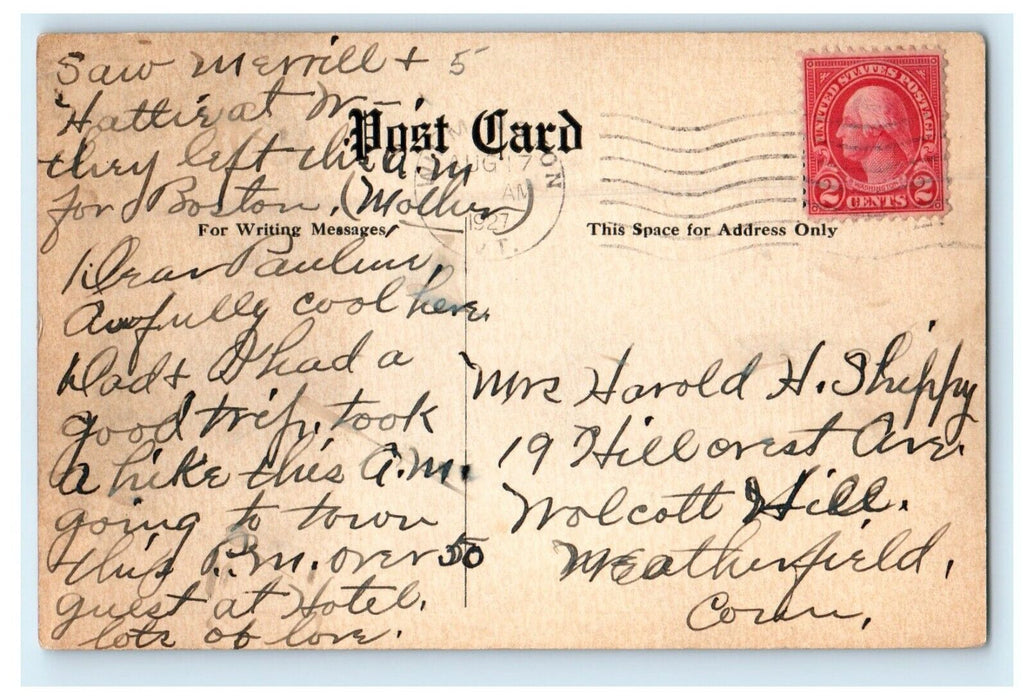 Saw Merrill + 5
Hattie at W-
they left this a.m
for Boston. (Mother)
Post Card
AUG 17
AM
1927
VT.
For Writing Messages
This Space for Address Only
UNITED STATES POSTAGE
WASHINGTON
2 CENTS 2
Dear Pauline,
Awfully cool here.
Dad + I had a
good trip, took
a hike this A.M.
going to town
this P.m. over 50
guest at Hotel.
lots of love.
Mrs Harold H. Shippy
19 Hillcrest Ave.
Wolcott Hill.
Weatherfield,
Conn,